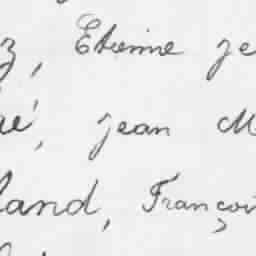 z, Etienne je
ué, jean M
land, Françoi